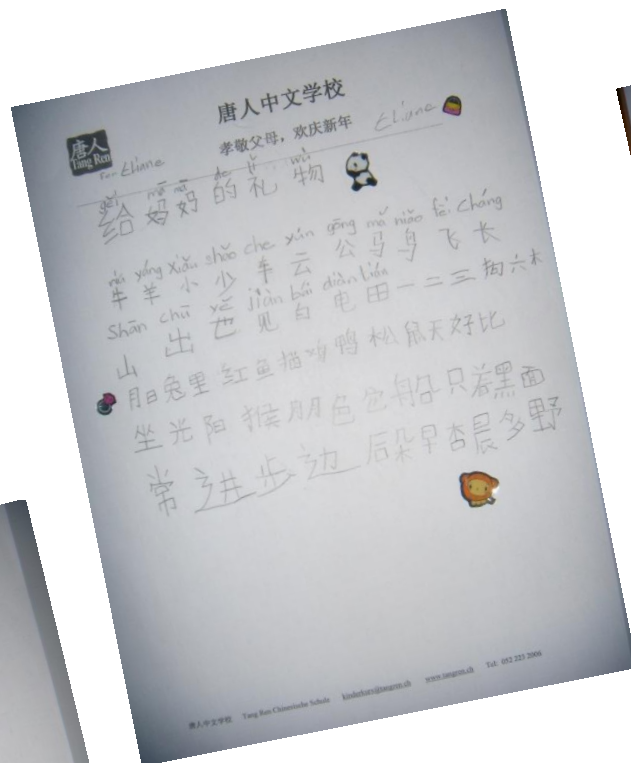 唐人中文学校
唐人
Tang Ren
孝敬父母，欢庆新年
Eliane
For Eliane
gěi mā mā de lǐ wù
给妈妈的礼物
niú yáng xiǎo shǎo che yún gōng mǎ niǎo fēi cháng
牛羊小少车云公马鸟飞长
shān chū yě jiàn bái diàn tián
山出也见白电田一二三狗六木
月日兔里红鱼猫鸡鸭松鼠天好比
坐光阳猴朋色包船只着黑面
常进步边后朵早杏晨多野
唐人中文学校 Tang Ren Chinesische Schule kinderkurs@tangren.ch www.tangren.ch Tel: 052 223 2006